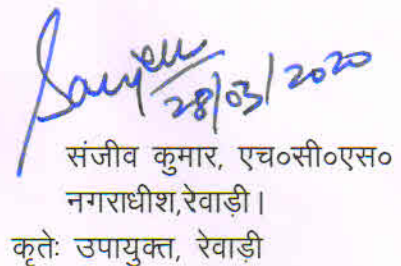 Sanjeev
28/03/2020
संजीव कुमार, एच०सी०एस०
नगराधीश,रेवाड़ी।
कृतेः उपायुक्त, रेवाड़ी